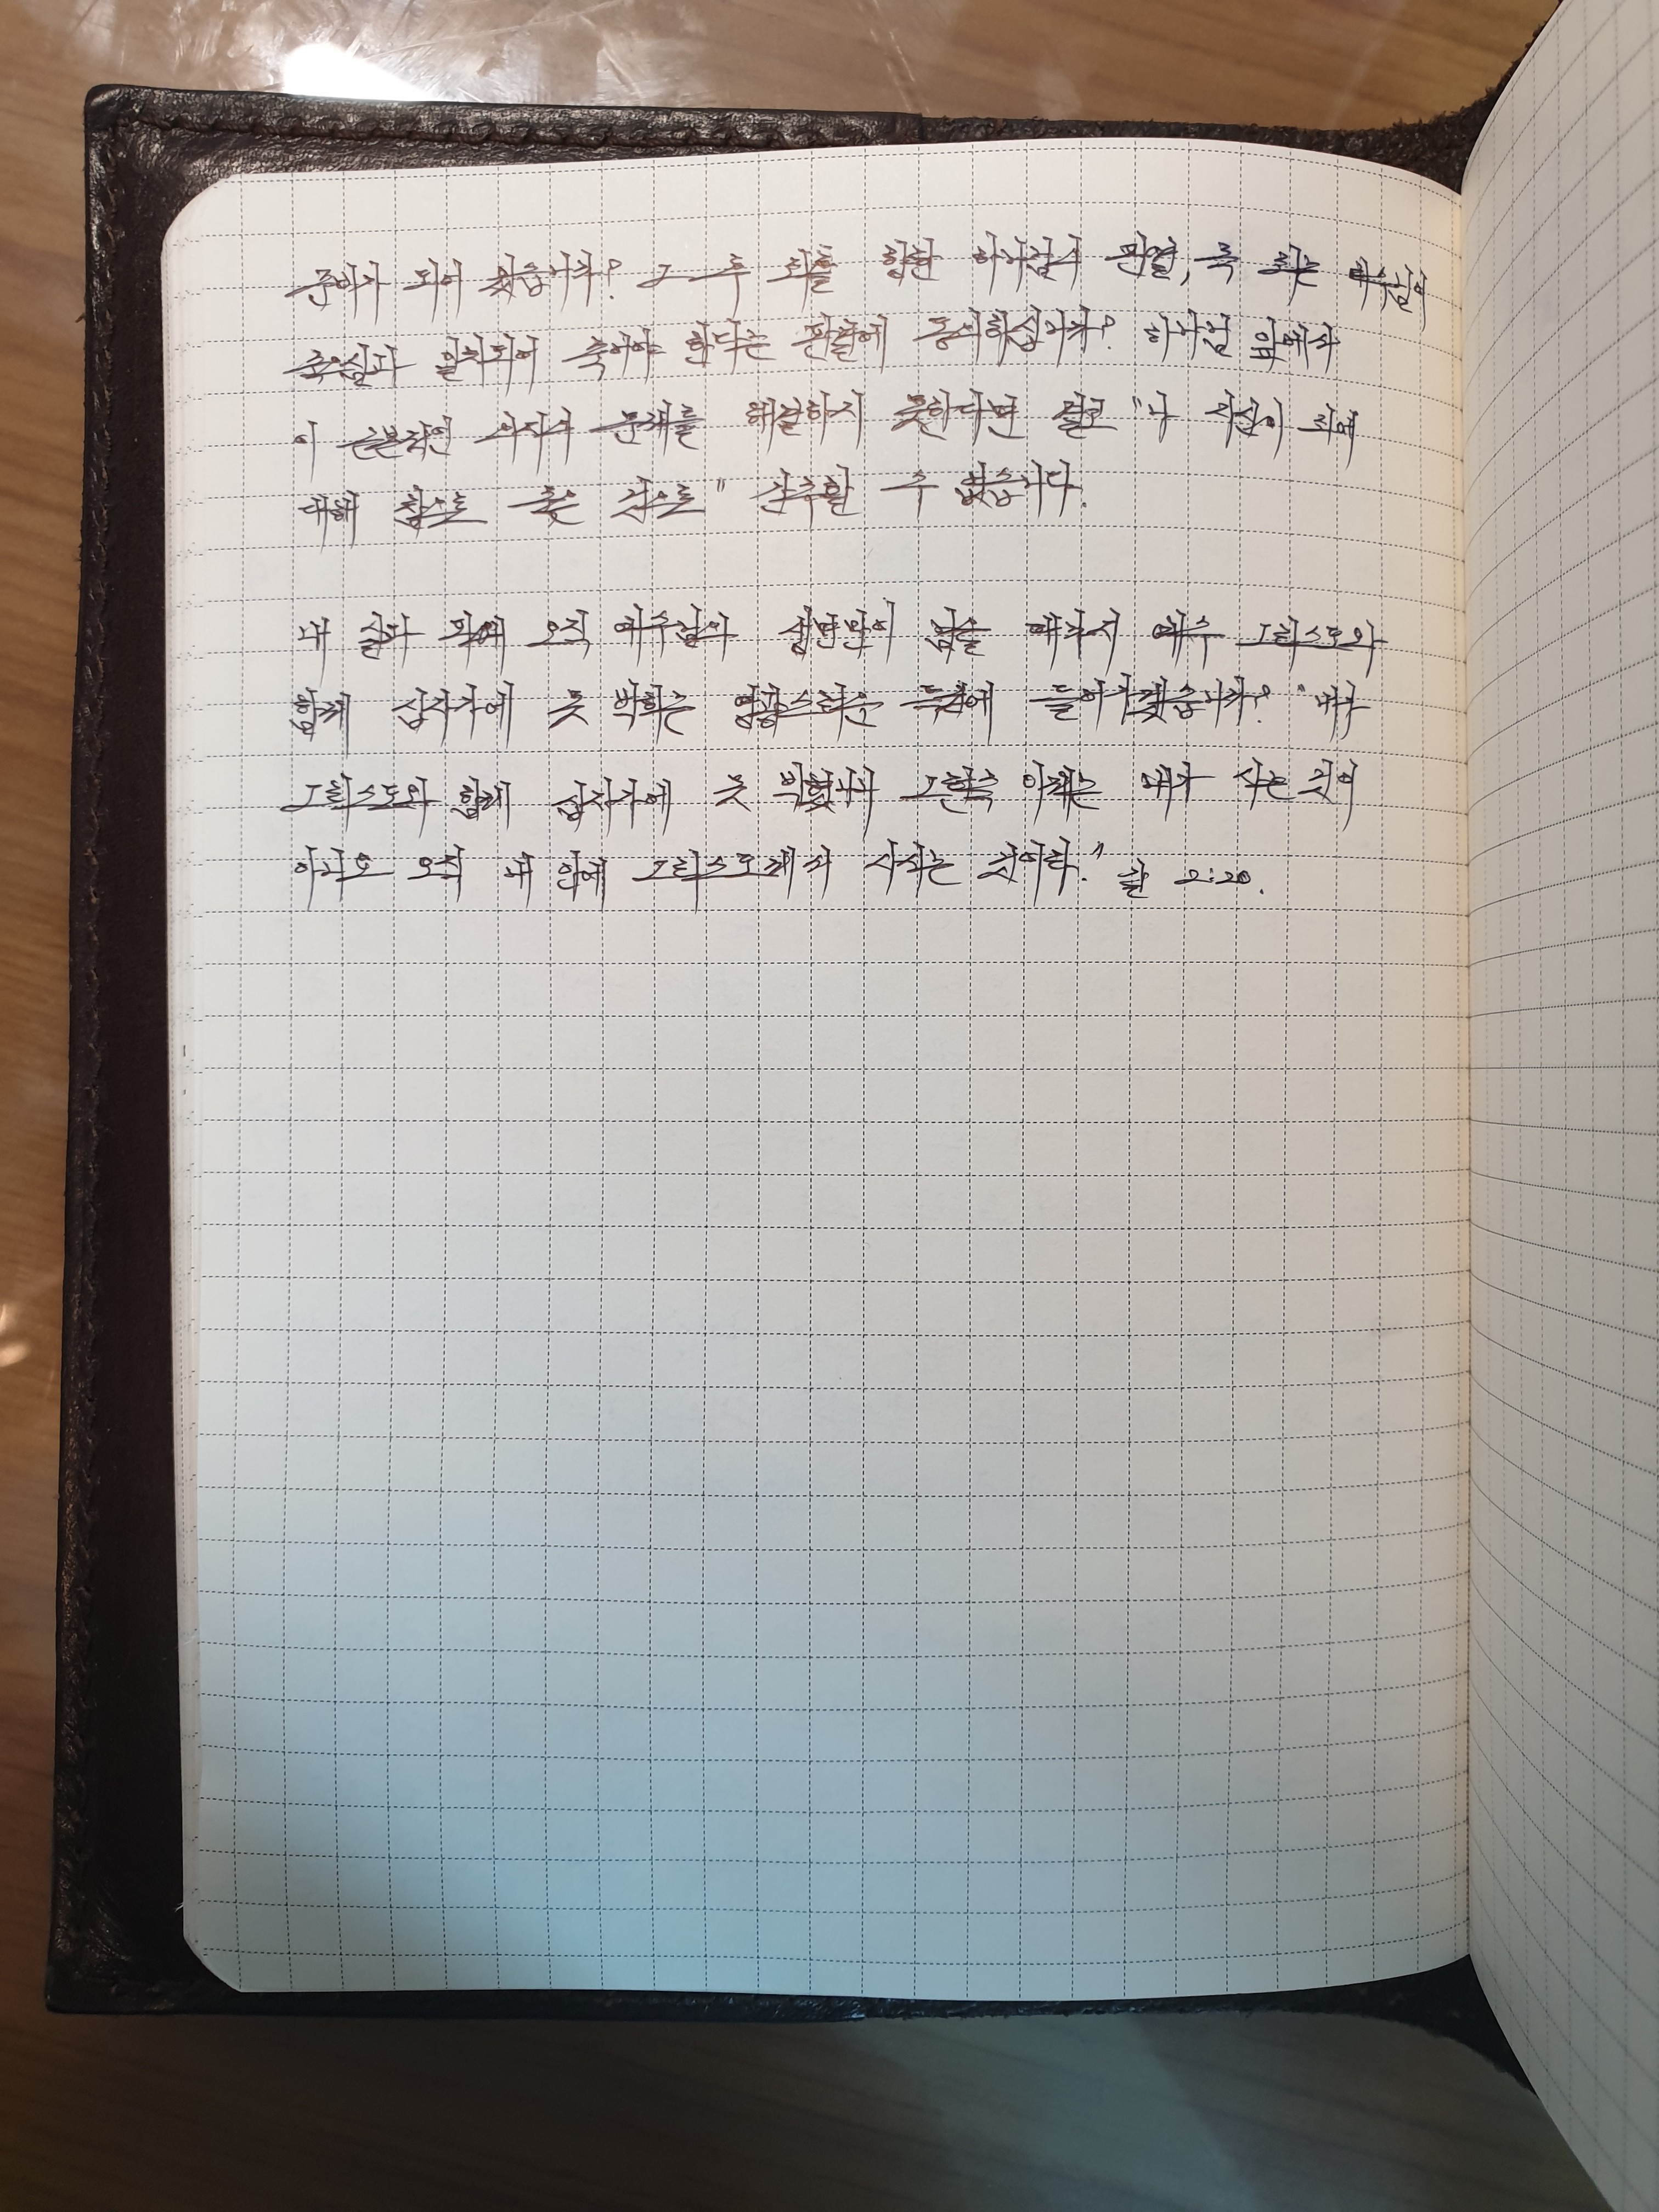 준비가 되어 있습니까? 그 후 죄를 향한 하나님의 판결, 즉 죄는 예수님의
죽으심과 일치되어 죽어야 한다는 판결에 동의하십니까? 하나님 앞에서
이 근본적인 의지의 문제를 해결하지 못한다면 결코 "나 자신이 죄에
대해 참으로 죽은 것으로" 간주할 수 없습니다.
내 살과 피에 오직 예수님의 생명만이 남을 때까지 예수 그리스도와
함께 십자가에 못 박히는 영광스러운 특권에 들어가겠습니까? "내가
그리스도와 함께 십자가에 못 박혔나니 그런즉 이제는 내가 사는 것이
아니요 오직 내 안에 그리스도께서 사시는 것이라." 갈 2:20.